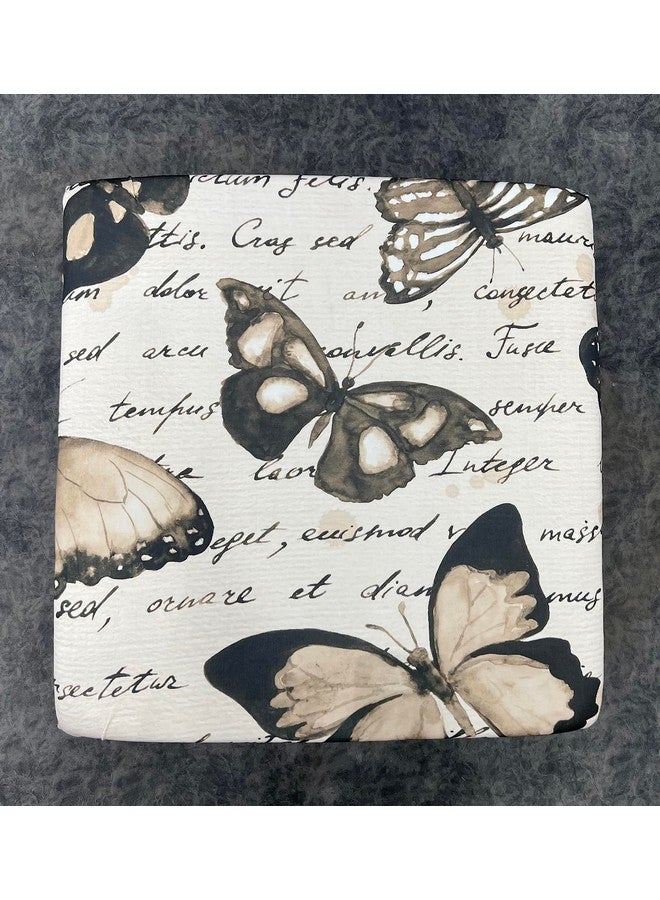 felis.
ttis. Cras sed mauri
m dolor it am , consectet
sed arcu convallis. Fusce
tempus semper
laor Integer
eget, euismod v mass
sed, ornare et diam mus
sectetur